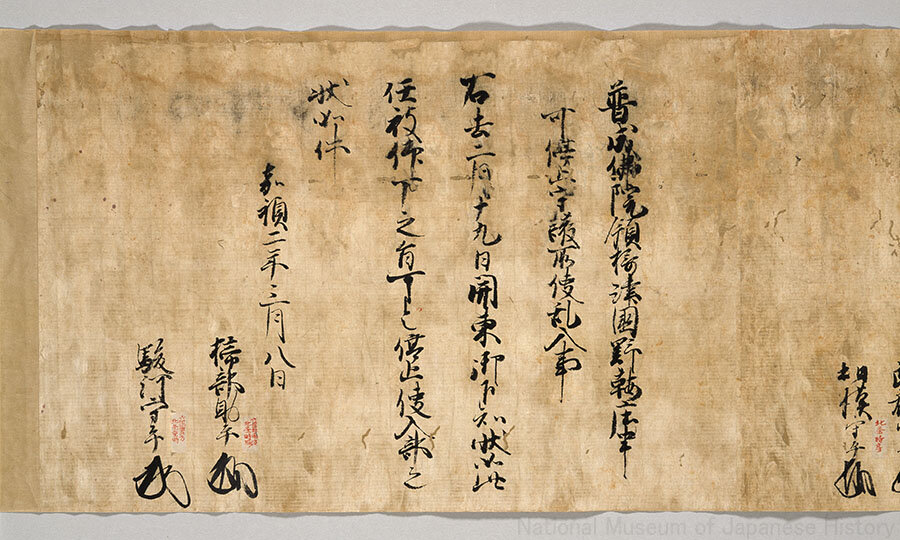 普成佛院領摂津國野鞍庄事
可停止守護所使乱入事
右去二月十九日關東御下知状如此
任被仰下之旨可令停止使入部之
状如件
嘉禎二年三月八日
掃部助平
駿河守平
相模守平
National Museum of Japanese History